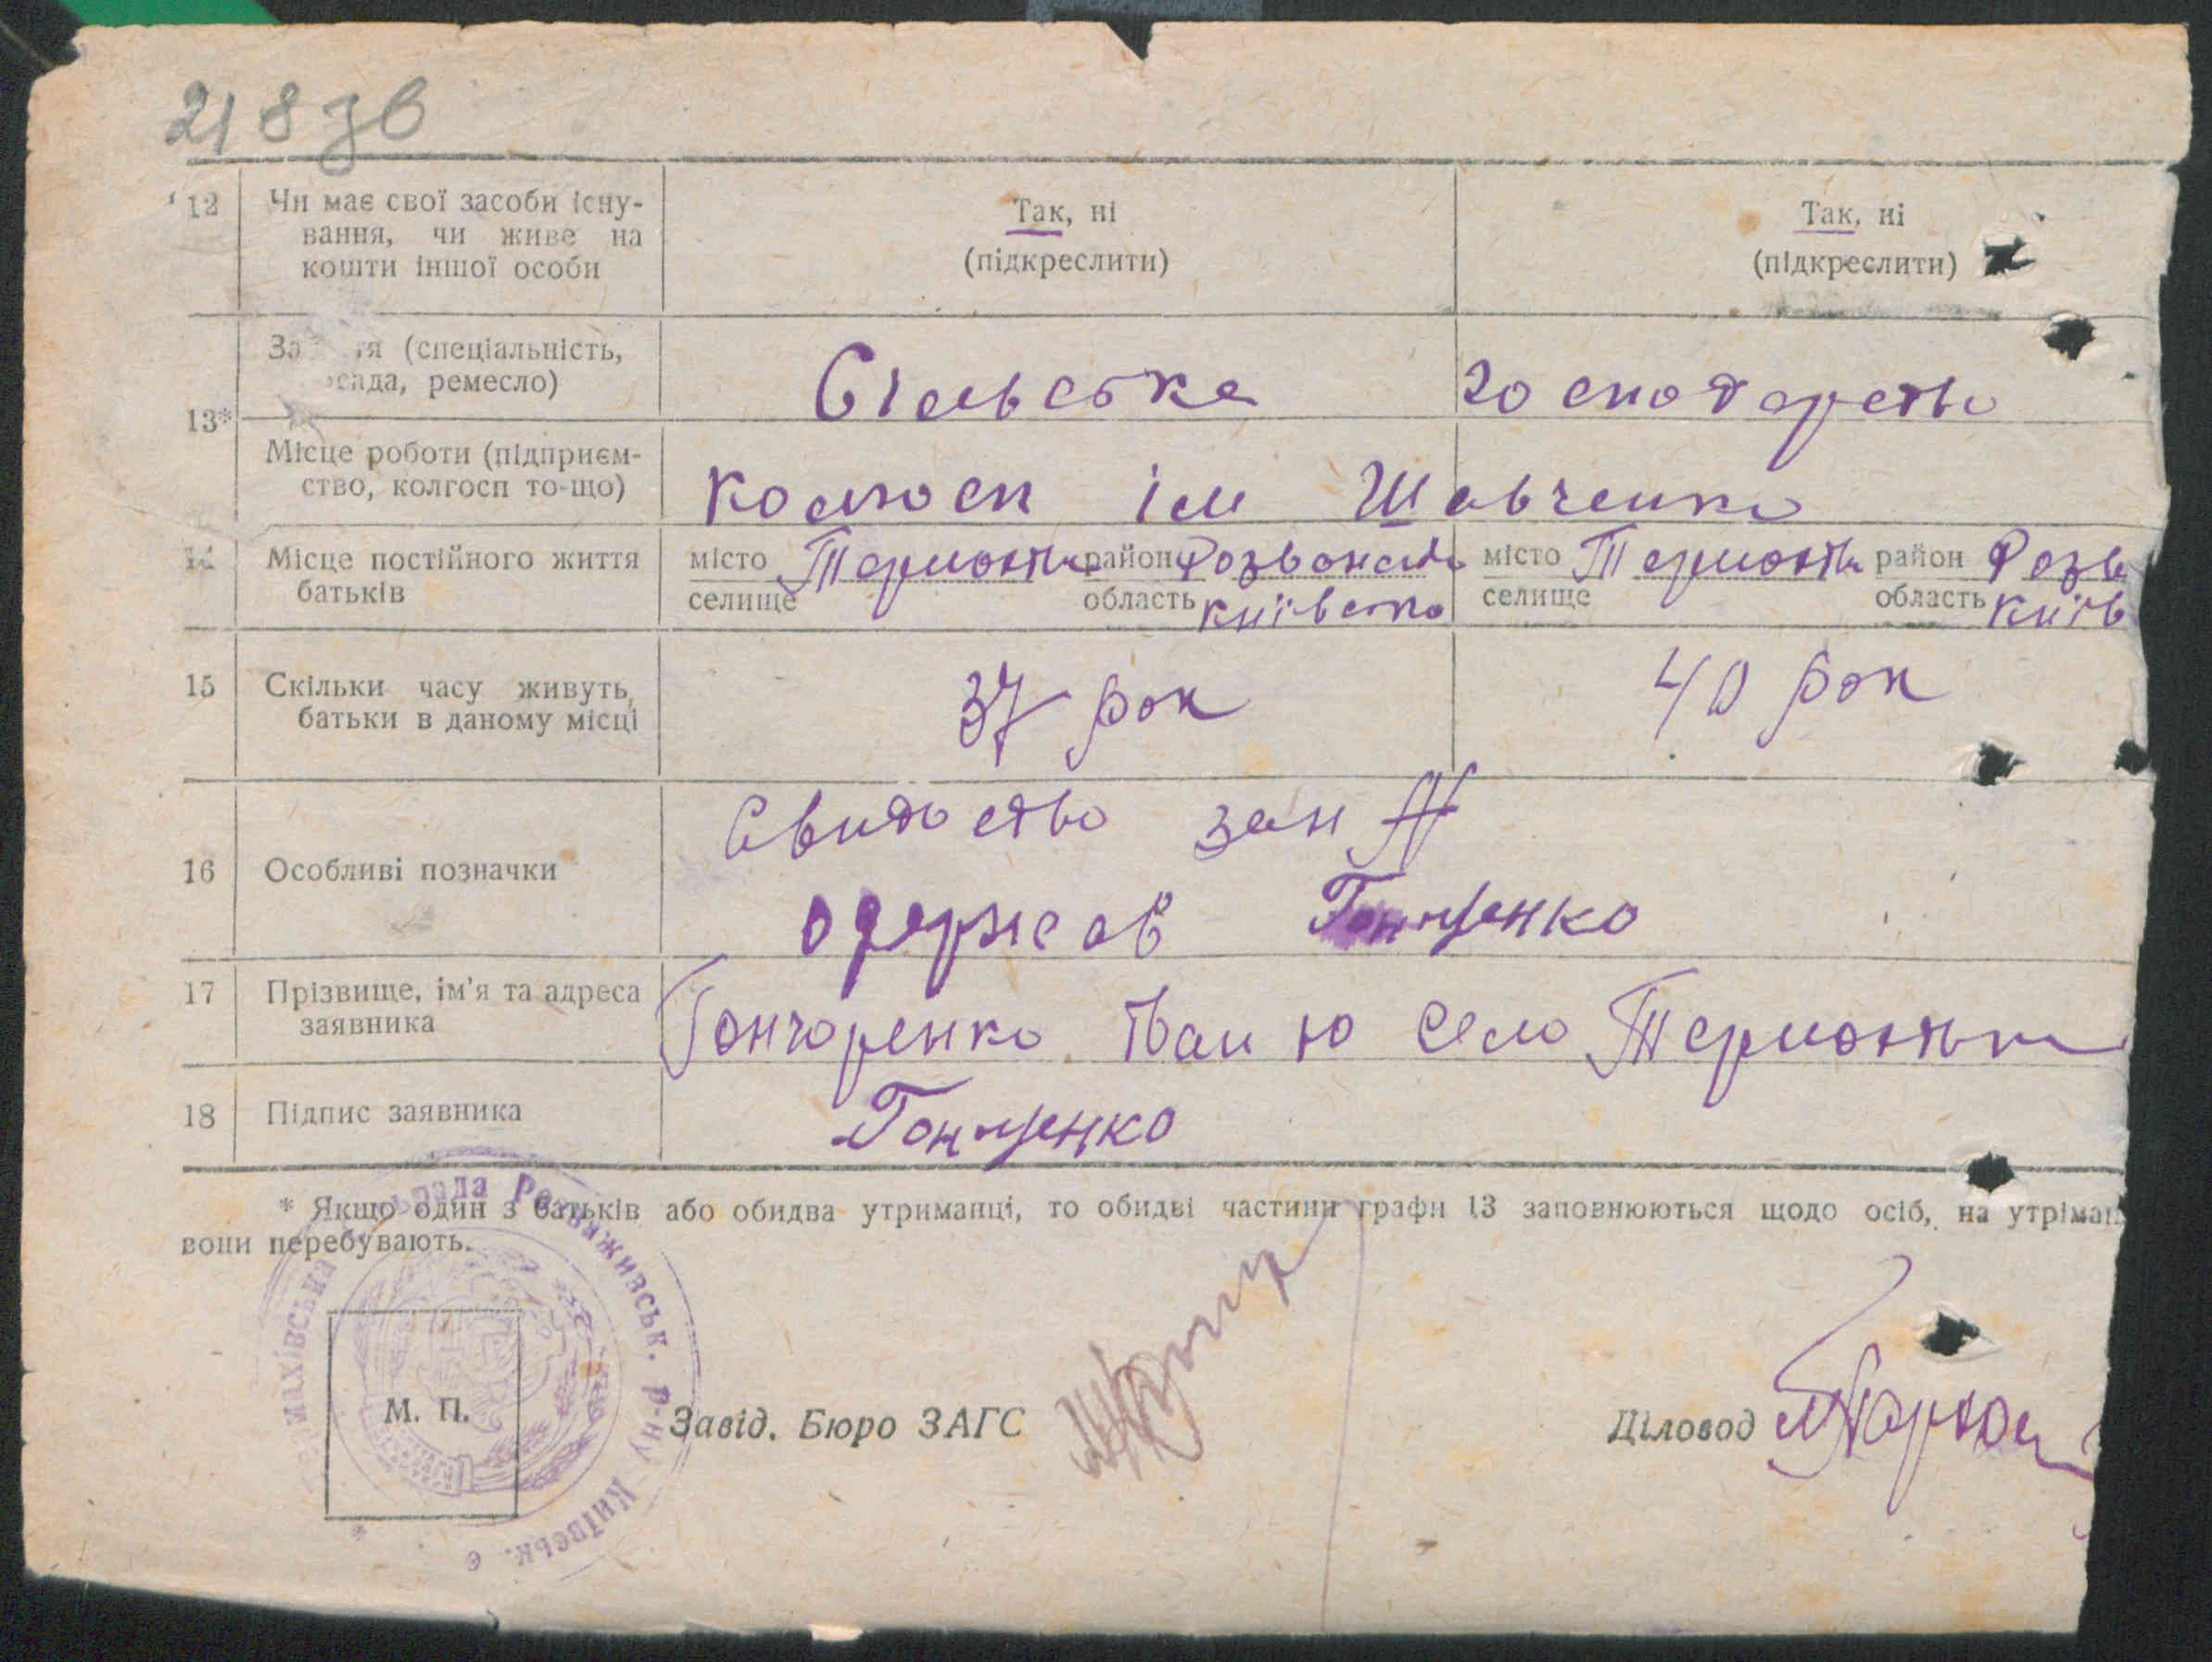 218 зв
12 Чи має свої засоби існу-
вання, чи живе на
кошти іншої особи
Так, ні
(підкреслити)
Так, ні
(підкреслити)
13*
(спеціальність,
ремесло)
Сільське господарство
Місце роботи (підприєм-
ство, колгосп то-що)
колгосп ім Шевченка
Місце постійного життя
батьків
місто
селище
район
область Київська
місто
селище
район Розв
область Київ
15 Скільки часу живуть
батьки в даному місці
37 рок
40 рок
16 Особливі позначки
зан №
одержав Гончренко
17 Прізвище, ім'я та адреса
заявника
Гончаренко Іван Ю село
18 Підпис заявника
Гончренко
* Якщо один з батьків або обидва утриманці, то обидві частини графи 13 заповнюються щодо осіб, на утриман
вони перебувають.
махівська рада Розважівськ. р-ну Київськ.
М. П.
Завід. Бюро ЗАГС
Діловод